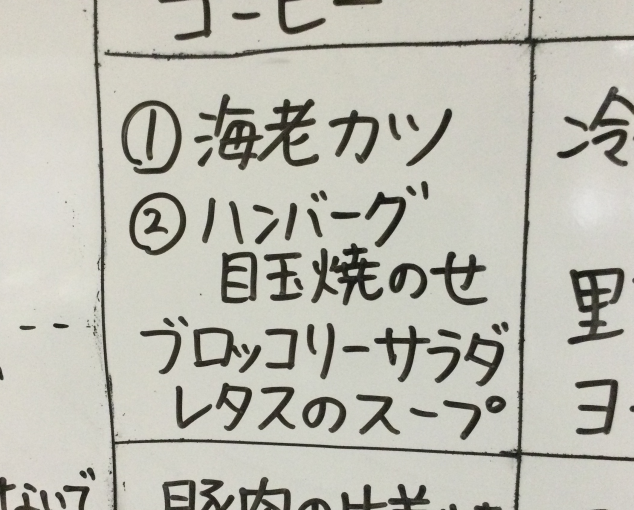 コーヒー
① 海老カツ
② ハンバーグ
目玉焼のせ
ブロッコリーサラダ
レタスのスープ
冷
ヨ
ないで
豚肉の生姜